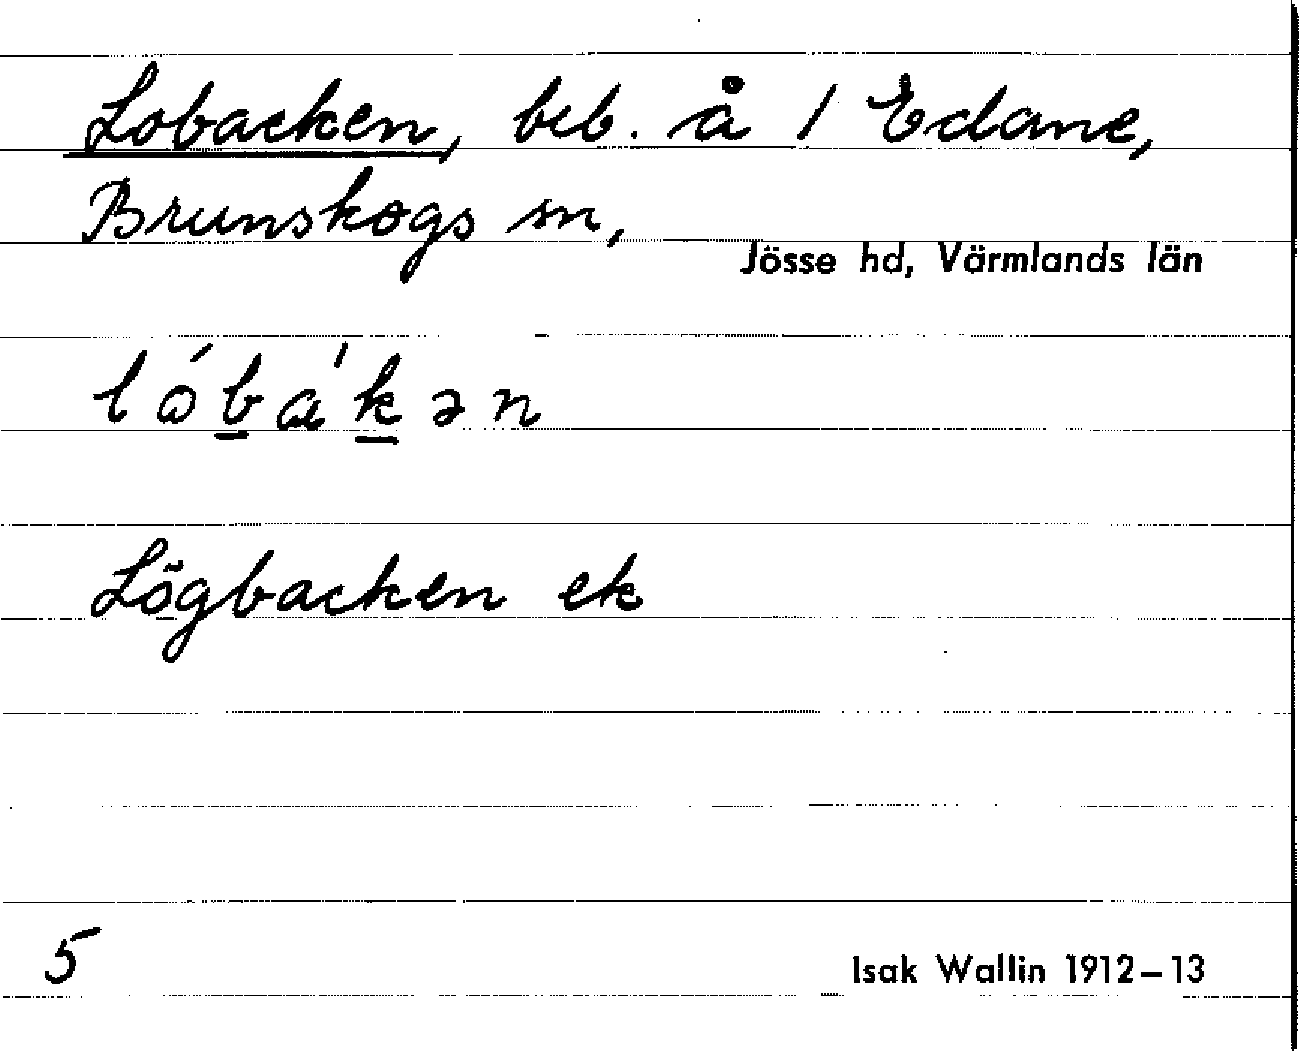 Lobacken, beb. å 1 Edane,
Brunskogs sn,
Jösse hd, Värmlands län
lóba'kən
Lögbacken ek
5
Isak Wallin 1912–13